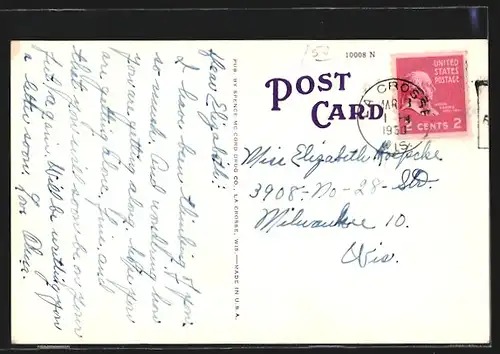 Dear Elizabeth:
I have been thinking of you
so much. And wondering how
you are getting along. Hope you
are getting along fine, and
that you will soon be on your
feet again. Will be writing you
a letter soon. Love Olga.
PUB. BY SPENCE-MCCORD DRUG CO., LA CROSSE, WIS.—MADE IN U.S.A.
150
10008 N
POST
CARD
LA CROSSE
MAR
1950
WIS.
UNITED
STATES
POSTAGE
2 CENTS 2
Miss Elizabeth Koepcke
3908-No-28-Str
Milwaukee 10.
Wis.